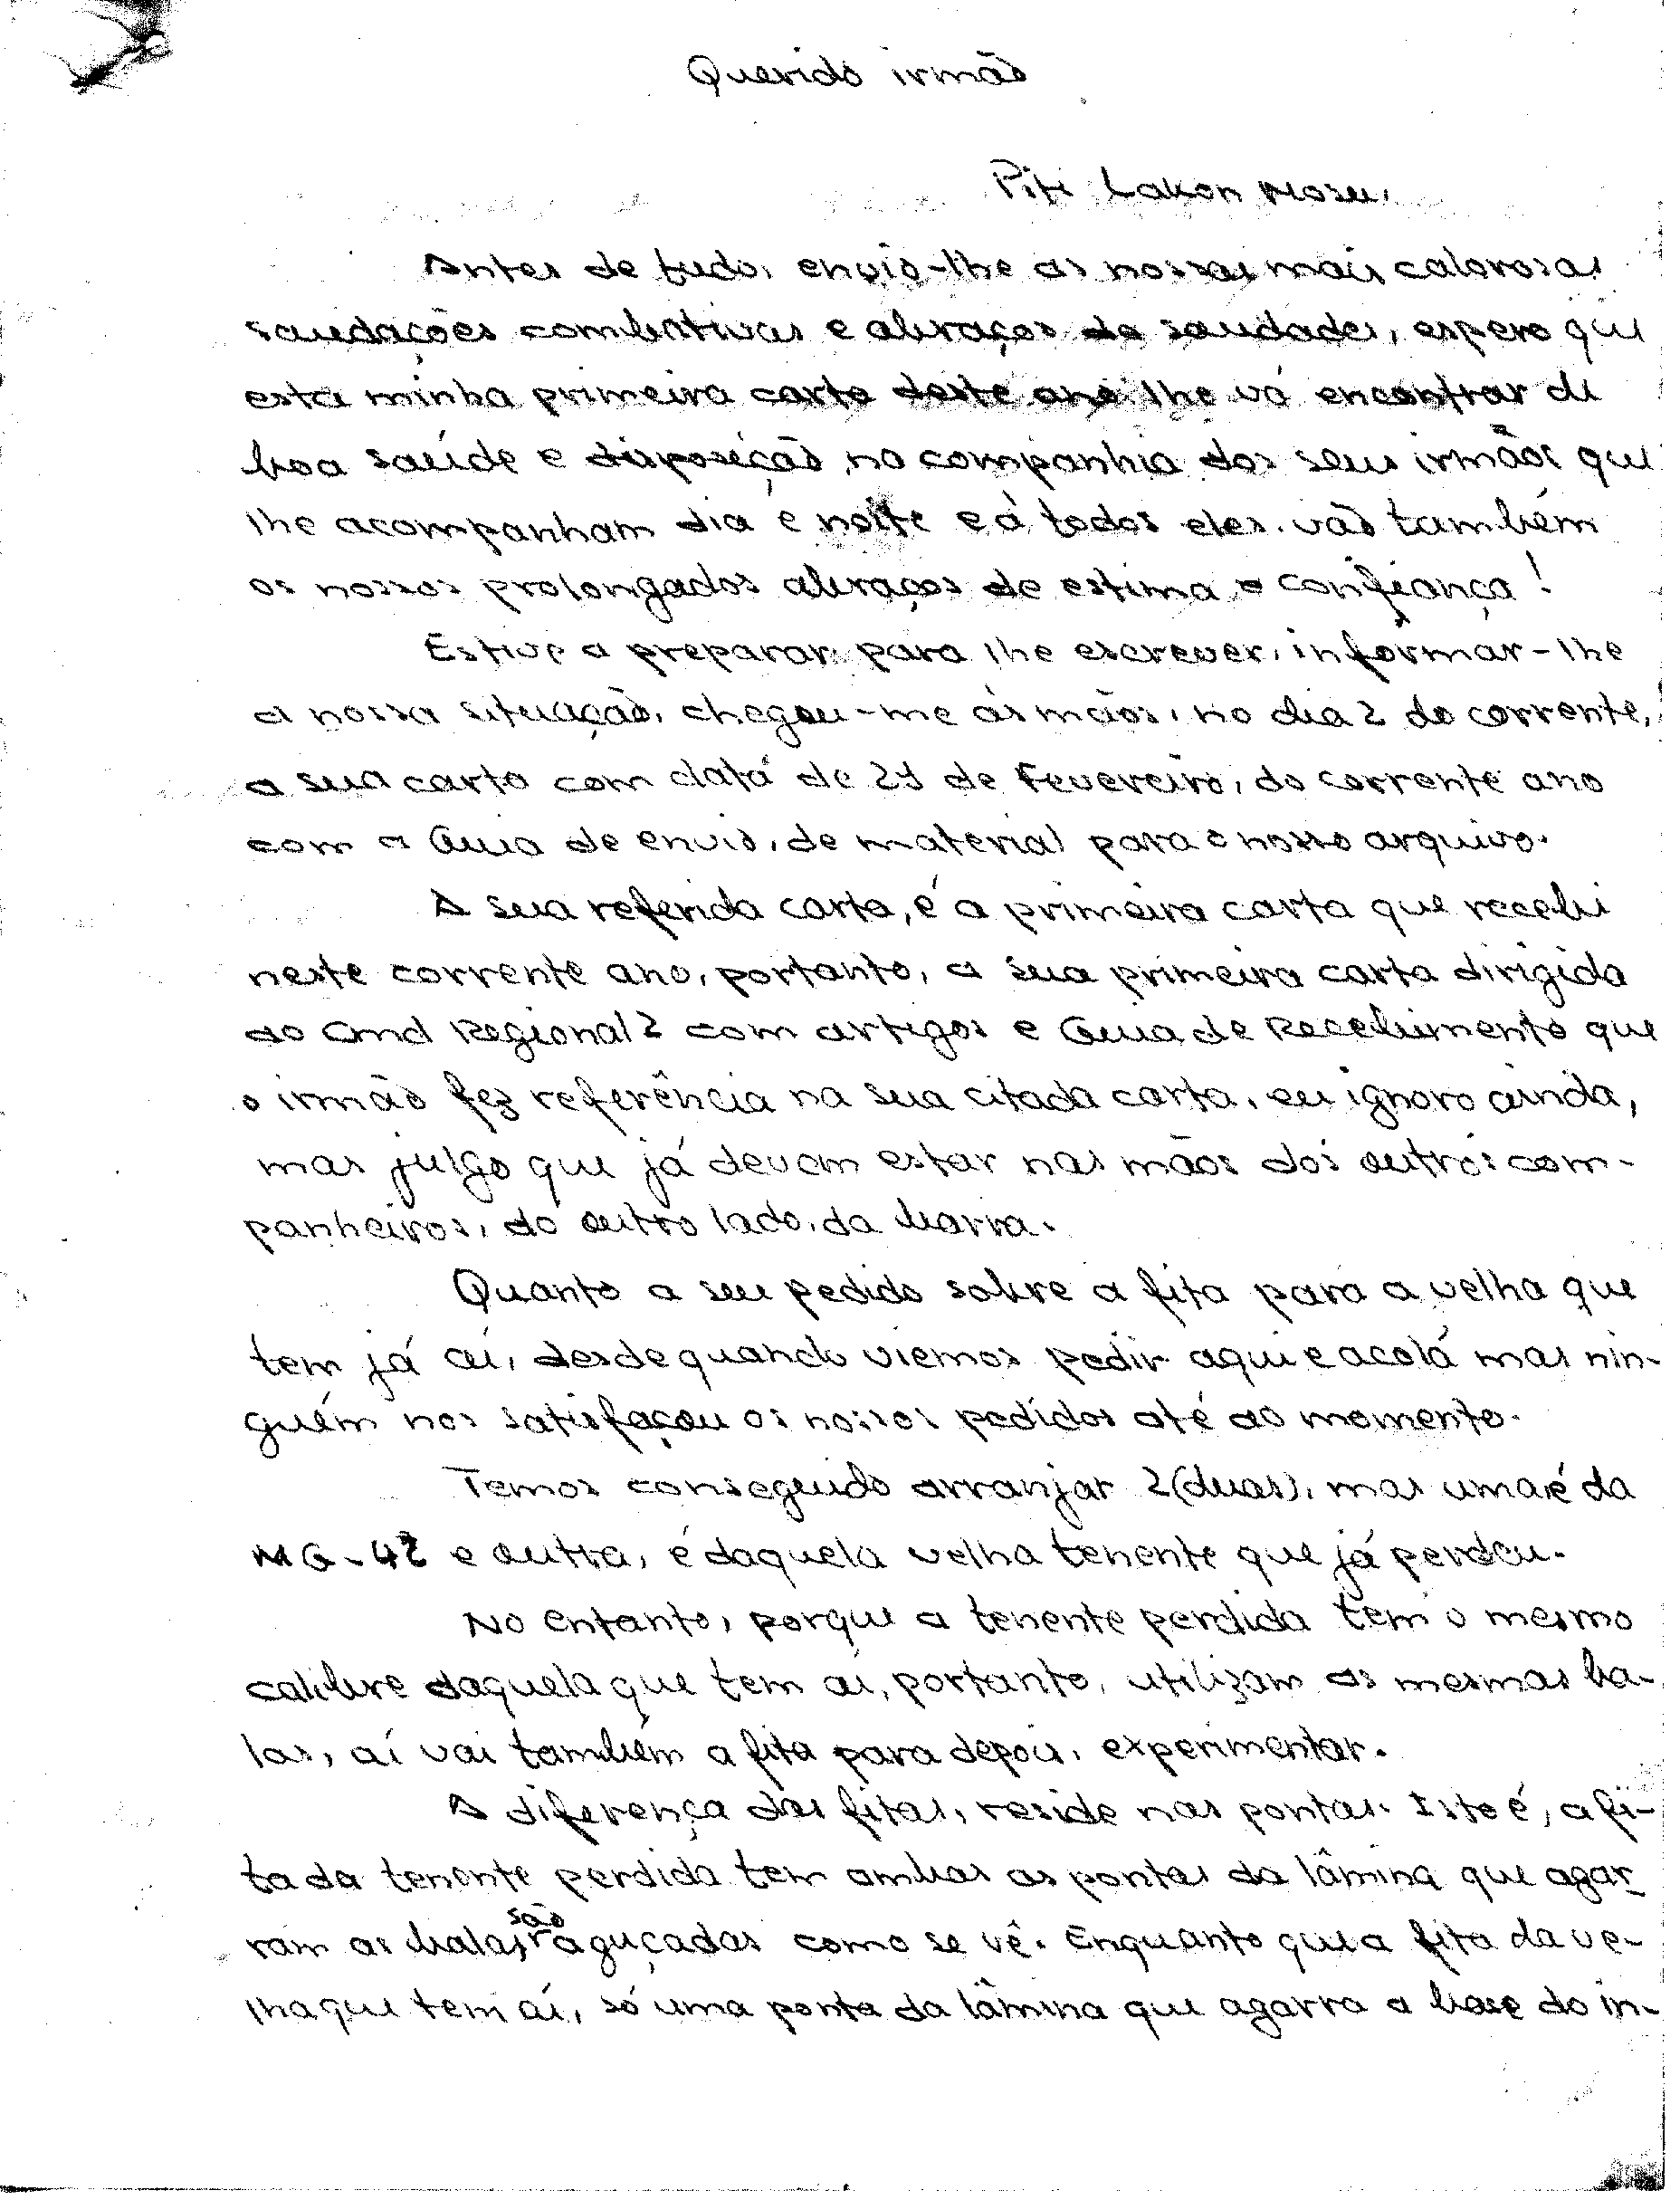 Querido irmão
Piti Lakon Mosu,
Antes de tudo, envio-lhe as nossas mais calorosas
saudações combativas e abraços de saudades, espero que
esta minha primeira carta deste ano lhe vá encontrar de
boa saúde e disposição, na companhia dos seus irmãos que
lhe acompanham dia e noite e à todos eles vão também
os nossos prolongados abraços de estima e confiança!
Estive a preparar para lhe escrever, informar-lhe
a nossa situação, chegou-me às mãos, no dia 2 do corrente,
a sua carta com data de 21 de Fevereiro, do corrente ano
com a Guia de envio, de material para o nosso arquivo.
A sua referida carta, é a primeira carta que recebi
neste corrente ano, portanto, a sua primeira carta dirigida
ao Cmd Regional 2 com artigos e Guia de Recebimento que
o irmão fez referência na sua citada carta, eu ignoro ainda,
mas julgo que já devem estar nas mãos dos outros com-
panheiros, do outro lado, da barra.
Quanto a seu pedido sobre a fita para a velha que
tem já aí, desde quando viemos pedir aqui e acolá mas nin-
guém nos satisfaçou os nossos pedidos até ao momento.
Temos conseguido arranjar 2 (duas), mas uma é da
MG-42 e outra, é daquela velha tenente que já perdeu.
No entanto, porque a tenente perdida tem o mesmo
calibre daquela que tem aí, portanto, utilizam as mesmas ba-
las, aí vai também a fita para depois, experimentar.
A diferença das fitas, reside nas pontas. Isto é, a fi-
ta da tenente perdida tem ambas as pontas da lâmina que agar-
ram as balas, são aguçadas como se vê. Enquanto que a fita da ve-
lha que tem aí, só uma ponta da lâmina que agarra a base do in-